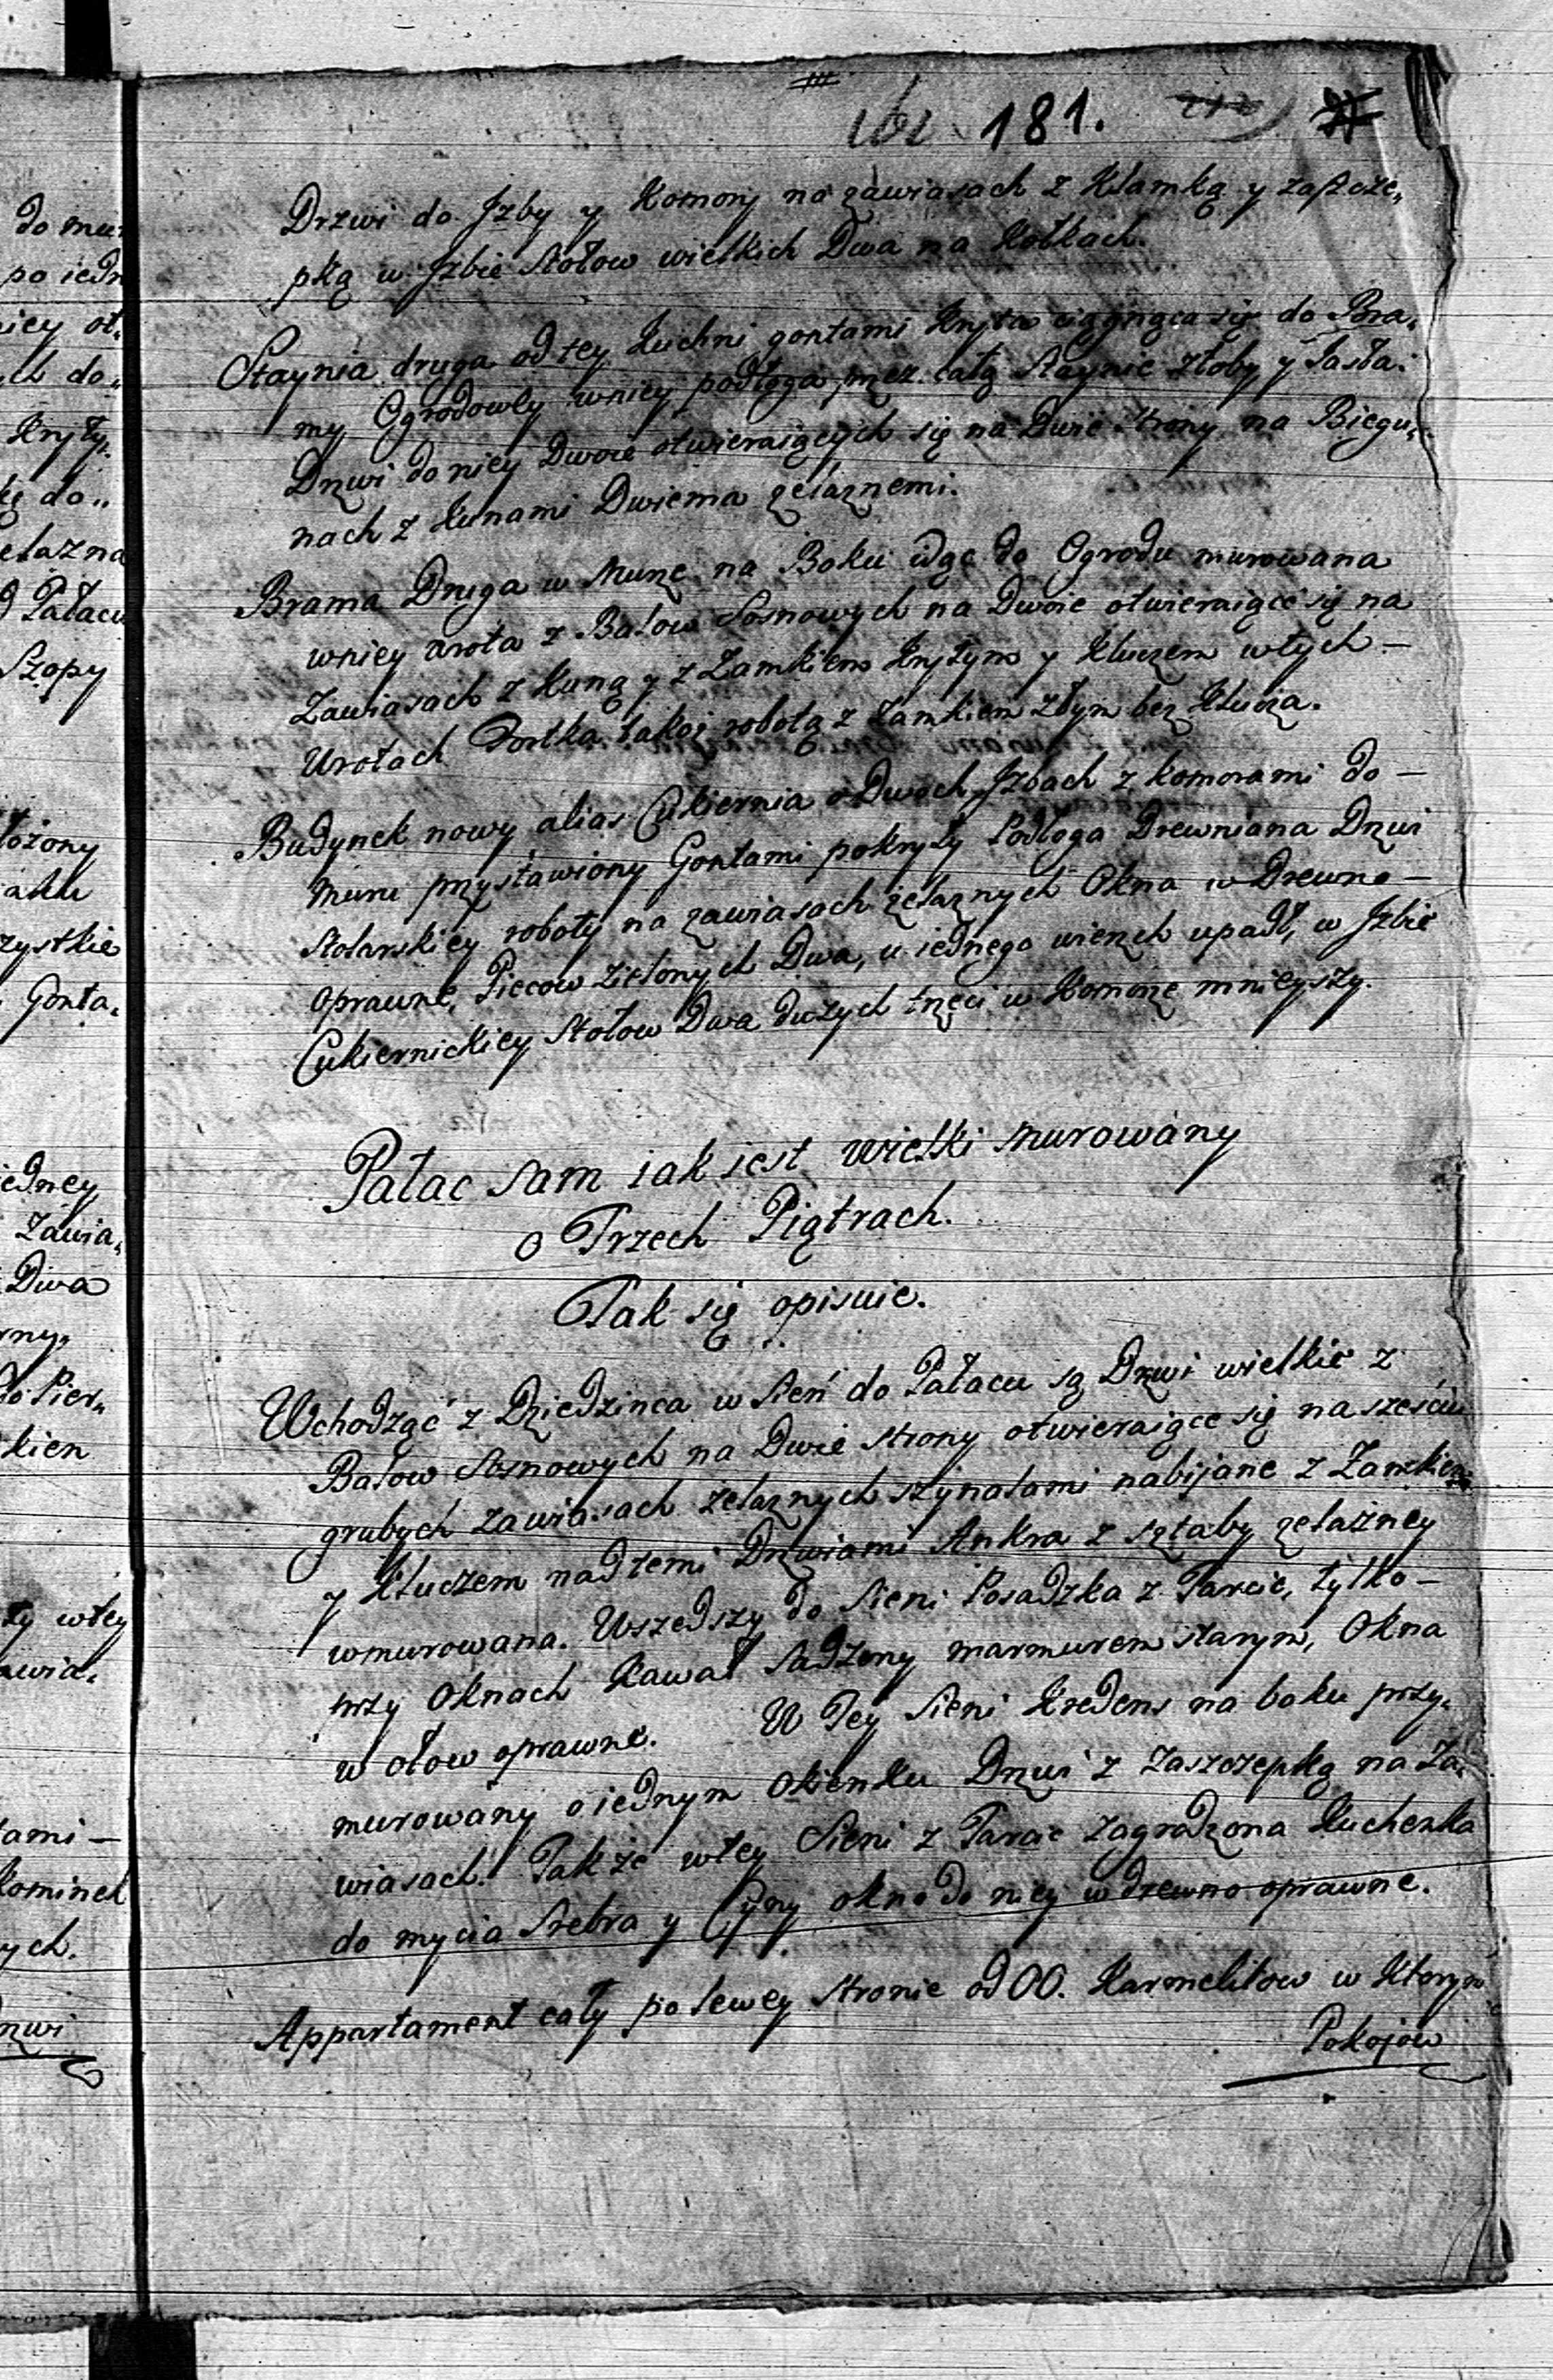 181.
Drzwi do Jzby y Komory na zawiasach z Klamką y zaszcze„
pką w Jzbie Stołow wielkich Dwa na Kołkach.
Staynia druga od tey Kuchni gontami kryta ciągnąca się do Bra„
my Ogrodowey wniey podłoga przez całą Staynie żłoby y Jasła.
Drzwi do niey Dwoie otwieraiących się na Dwie strony na Biegu„
nach z Kunami Dwiema żelaznemi.
Brama Druga w Murze na Boku idąc do Ogrodu murowana
wniey wrota z Balow Sosnowych na Dwoie otwieraiące się na
Zawiasach z Kuną y z Zamkiem Krytym y Kluczem wtych —
Wrotach Fortka takąż robotą z Zamkiem złym bez Klucza.
Budynek nowy alias Cukiernia o Dwoch Jzbach z komorami do —
Muru przystawiony Gontami pokryty Podłoga Drewniana Drzwi
Stolarskiey roboty na zawiasach żelaznych Okna w Drewno —
oprawne, Piecow zielonych Dwa, u iednego wierzch upadł, w Jzbie
Cukiernickiey Stołow Dwa dużych trzeci w Komorze mnieyszy.
Pałac sam iak iest wielki murowany
o Trzech Piątrach.
Tak się opisuie.
Wchodząc z Dziedzinca w Sień do Pałacu są Drzwi wielkie z
Balow Sosnowych na Dwie strony otwieraiące się na sześciu
grubych zawiasach żelaznych szynalami nabijane z Zamkiem
y Kluczem nad temi Drzwiami Ankra z sztaby żelazney
wmurowana. Wszedszy do Sieni Posadzka z Tarcic, tylko —
przy oknach Kawał sadzony marmurem starym, Okna
w ołow oprawne. W Tey Sieni Kredens na boku przy„
murowany o iednym okienku Drzwi z zaszczepką na Za„
wiasach. Także wtey Sieni z Tarcic zagrodzona Kuchenka
do mycia Srebra y Cyny okno do niey w drewno oprawne.
Appartament cały po lewey stronie od OO. Karmelitow w Ktorym
Pokojow